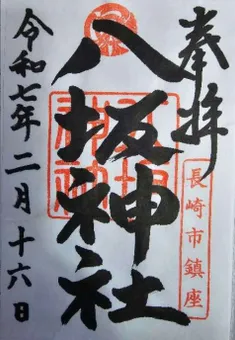 奉拝
長崎市鎮座
八坂神社
令和七年二月十六日